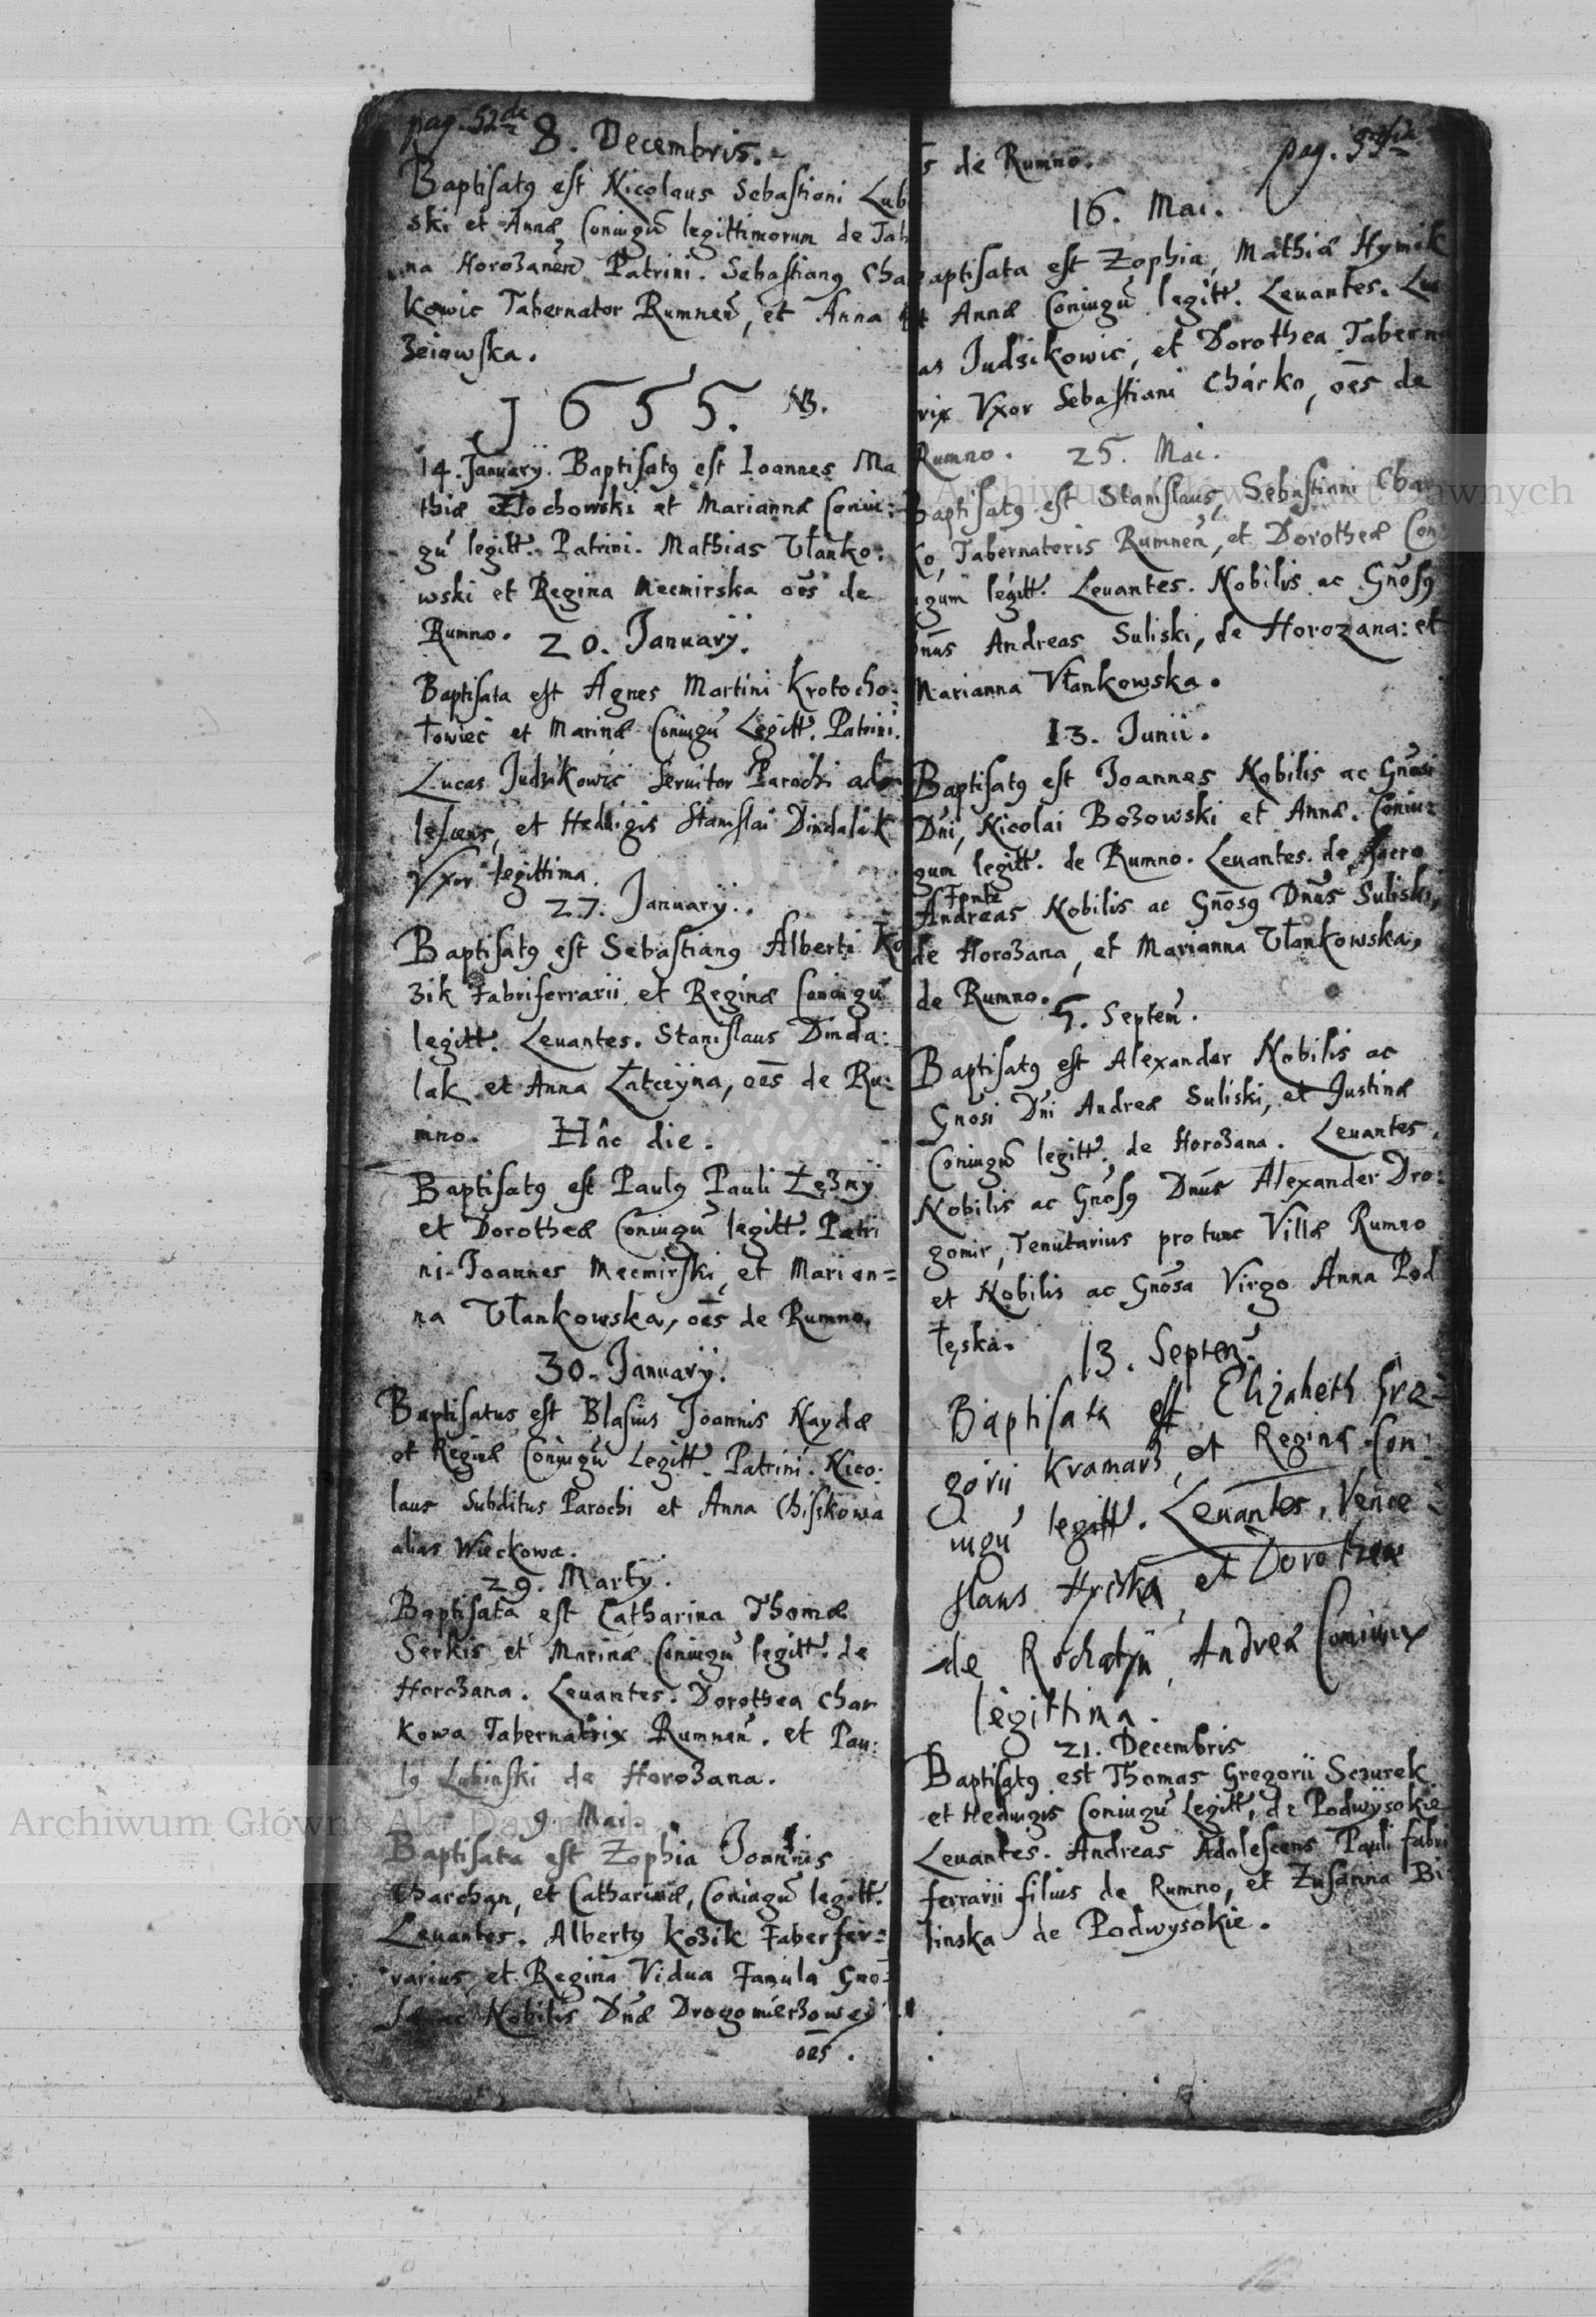 pag. 52da
8. Decembris.
Baptisatꝰ est Nicolaus Sebastiani Lub
ski et Annæ Coniugũ legittimorum de Tab
na Horozanen̄ Patrini. Sebastianꝰ Cha
kowic Tabernator Rumnen̄, et Anna
zeiowska.
1655. NB.
14. Januarÿ. Baptisatꝰ est Ioannes Ma
thiæ Złochowski et Mariannæ Coniu:
gũ legitt. Patrini. Mathias Vłanko:
wski et Regina Mecmirska oēs de
Rumno. 20. Januarÿ.
Baptisata est Agnes Martini Krotocho:
łowiec et Marinæ Coniugũ Legitt. Patrini.
Lucas Judzikowic Seruitor Parochi ado
lescens, et Hedvigis Stanislai Dindalak
Vxor legittima.
27. Januarÿ.
Baptisatꝰ est Sebastianꝰ Alberti Ko
zik Fabriferrarii et Reginæ Coniugũ
legitt. Leuantes. Stanislaus Dinda:
lak et Anna Łatczyna, oēs de Ru:
mno. Hâc die.
Baptisatꝰ est Paulꝰ Pauli Łęznÿ
et Dorotheæ Coniugũ legitt. Patri
ni. Joannes Mecmirski, et Marian=
na Vłankowska, oēs de Rumno.
30. Januarÿ.
Baptisatus est Blasius Joannis Naydæ
et Reginæ Coniugũ Legitt. Patrini. Nico:
laus Subditus Parochi et Anna Chiskowa
alias Wieckowa.
29. Martÿ.
Baptisata est Catharina Thomæ
Serkis et Marinæ Coniugũ legitt. de
Horozana. Leuantes. Dorothea Char
kowa Tabernatrix Rumnen̄. et Pau:
lꝰ Lubinski de Horozana.
9. Mai.
Baptisata est Zophia Joannis
Charchan, et Catharinæ, Coniugũ legitt.
Leuantes. Albertꝰ Kozik Faber fer=
rarius et Regina Vidua Famula Gno=
sæ ac Nobilis Dnæ Drogomierzowey
oēs.
s de Rumno. pag. 53tia
16. Mai.
aptisata est Zophia, Mathiæ Hymik
et Annæ Coniugũ legitt. Leuantes. Lu
as Judzikowic, et Dorothea Taberna
rix Vxor Sebastiani Chárko, oēs de
Rumno. 25. Mai.
Baptisatꝰ est Stanislaus, Sebastiani Char
ko, Tabernatoris Rumnen̄, et Dorotheæ Con
gum legitt. Leuantes. Nobilis ac Gnōsꝰ
Dnūs Andreas Suliski, de Horozana: et
Marianna Vłankowska.
13. Junii.
Baptisatꝰ est Joannes Nobilis ac Gnōsi
Dn̄i, Nicolai Bozowski et Annæ. Coniu:
gum legitt. de Rumno. Leuantes. de Sacro
Fonte
Andreas Nobilis ac Gnōsꝰ Dnūs Suliski,
de Horozana, et Marianna Vłankowska,
de Rumno. 5. Septem̄.
Baptisatꝰ est Alexander Nobilis ac
Gnōsi Dn̄i Andreæ Suliski, et Justinæ
Coniugũ legitt. de Horozana. Leuantes.
Nobilis ac Gnōsꝰ Dnūs Alexander Dro:
gomir, Tenutarius pro tunc Villæ Rumno
et Nobilis ac Gnōsa Virgo Anna Pod
łęska. 13. Septem̄.
Baptisata est Elizabeth Gre=
gorii Kramarz, et Reginæ Con:
iugũ legitt. Leuantes, Vence=
slaus Hriska, et Dorothea
de Rochatyn Andreæ Coniunx
legittima.
21. Decembris
Baptisatꝰ est Thomas Gregorii Sczurek
et Hedvigis Coniugũ Legitt, de Podwÿsokie
Leuantes. Andreas Adolescens Pauli fabri
ferrarii filius de Rumno, et Zusanna Bi
linska de Podwysokie.
Archiwum Główne Akt Dawnych
Archiwum Główne Akt Dawnych